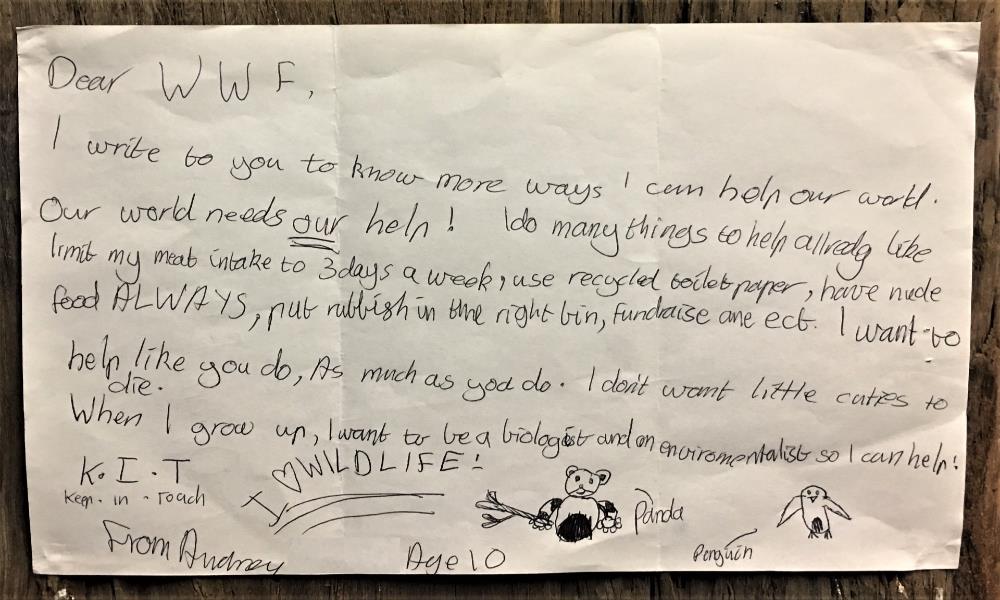 Dear WWF,
I write to you to know more ways I can help our world.
Our world needs our help! I do many things to help allredy like
limit my meat intake to 3 days a week, use recycled toilet paper, have nude
food ALWAYS, put rubbish in the right bin, fundraise and ect. I want to
help like you do, As much as you do. I don't want little cuties to
die.
When I grow up, I want to be a biologist and an enviromentalist so I can help!
K.I.T
Keep-in-Touch
I ♡ WILDLIFE!
Panda
Penguin
From Audrey
Age 10